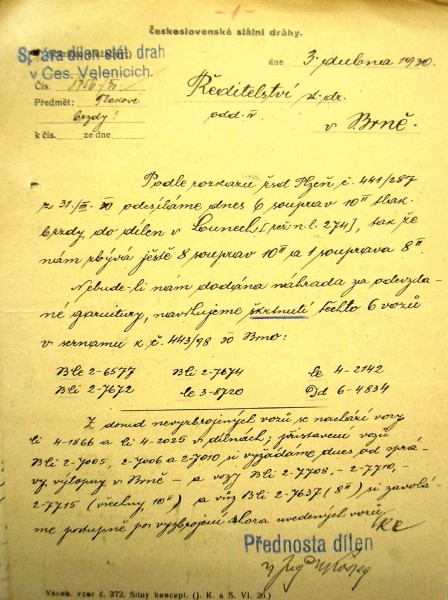 -1-
československé státní dráhy.
Správa dílen stát. drah
v Čes. Velenicích.
dne 3. dubna 1930
Čís.
Předmět: Tlakové
brzdy!
k čís. ze dne
Ředitelství st. dr.
odd. IV.
v Brně.
Podle rozkazu řsd Plzeň č. 441/287
z 31./III. 30 odesíláme dnes 6 souprav 10" tlak.
brzdy do dílen v Lounech [ n.l. 274], tak že
nám zbývá ještě 8 souprav 10" a 1 souprava 8".
Nebude-li nám dodána náhrada za odevzda-
né garnitury, navrhujeme škrtnutí těchto 6 vozů
v seznamu k č. 443/98 30 Brno:
Ble 2-6577 Bli 2-7674 le 4-2142
Bli 2-7672 le 3-8720 Dd 6-4834
Z dosud nevyzbrojených vozů se nachází vozy
li 4-1866 a li 4-2025 v dílnách; přistavení vozů
Bli 2-7005, 2-7006 a 2-7010 si vyžádáme dnes od sprá-
vy výtopny v Brně - a vozy Bli 2-7708,- 2-7710,-
2-7715 (všechny 10") a vůz Bli 2-7637 (8") si zavolá-
me postupně po vyzbrojení shora uvedených vozů.
Přednosta dílen
Ing.
Vzor č. 372. Silný koncept. (J. K. a S. VI. 26.)